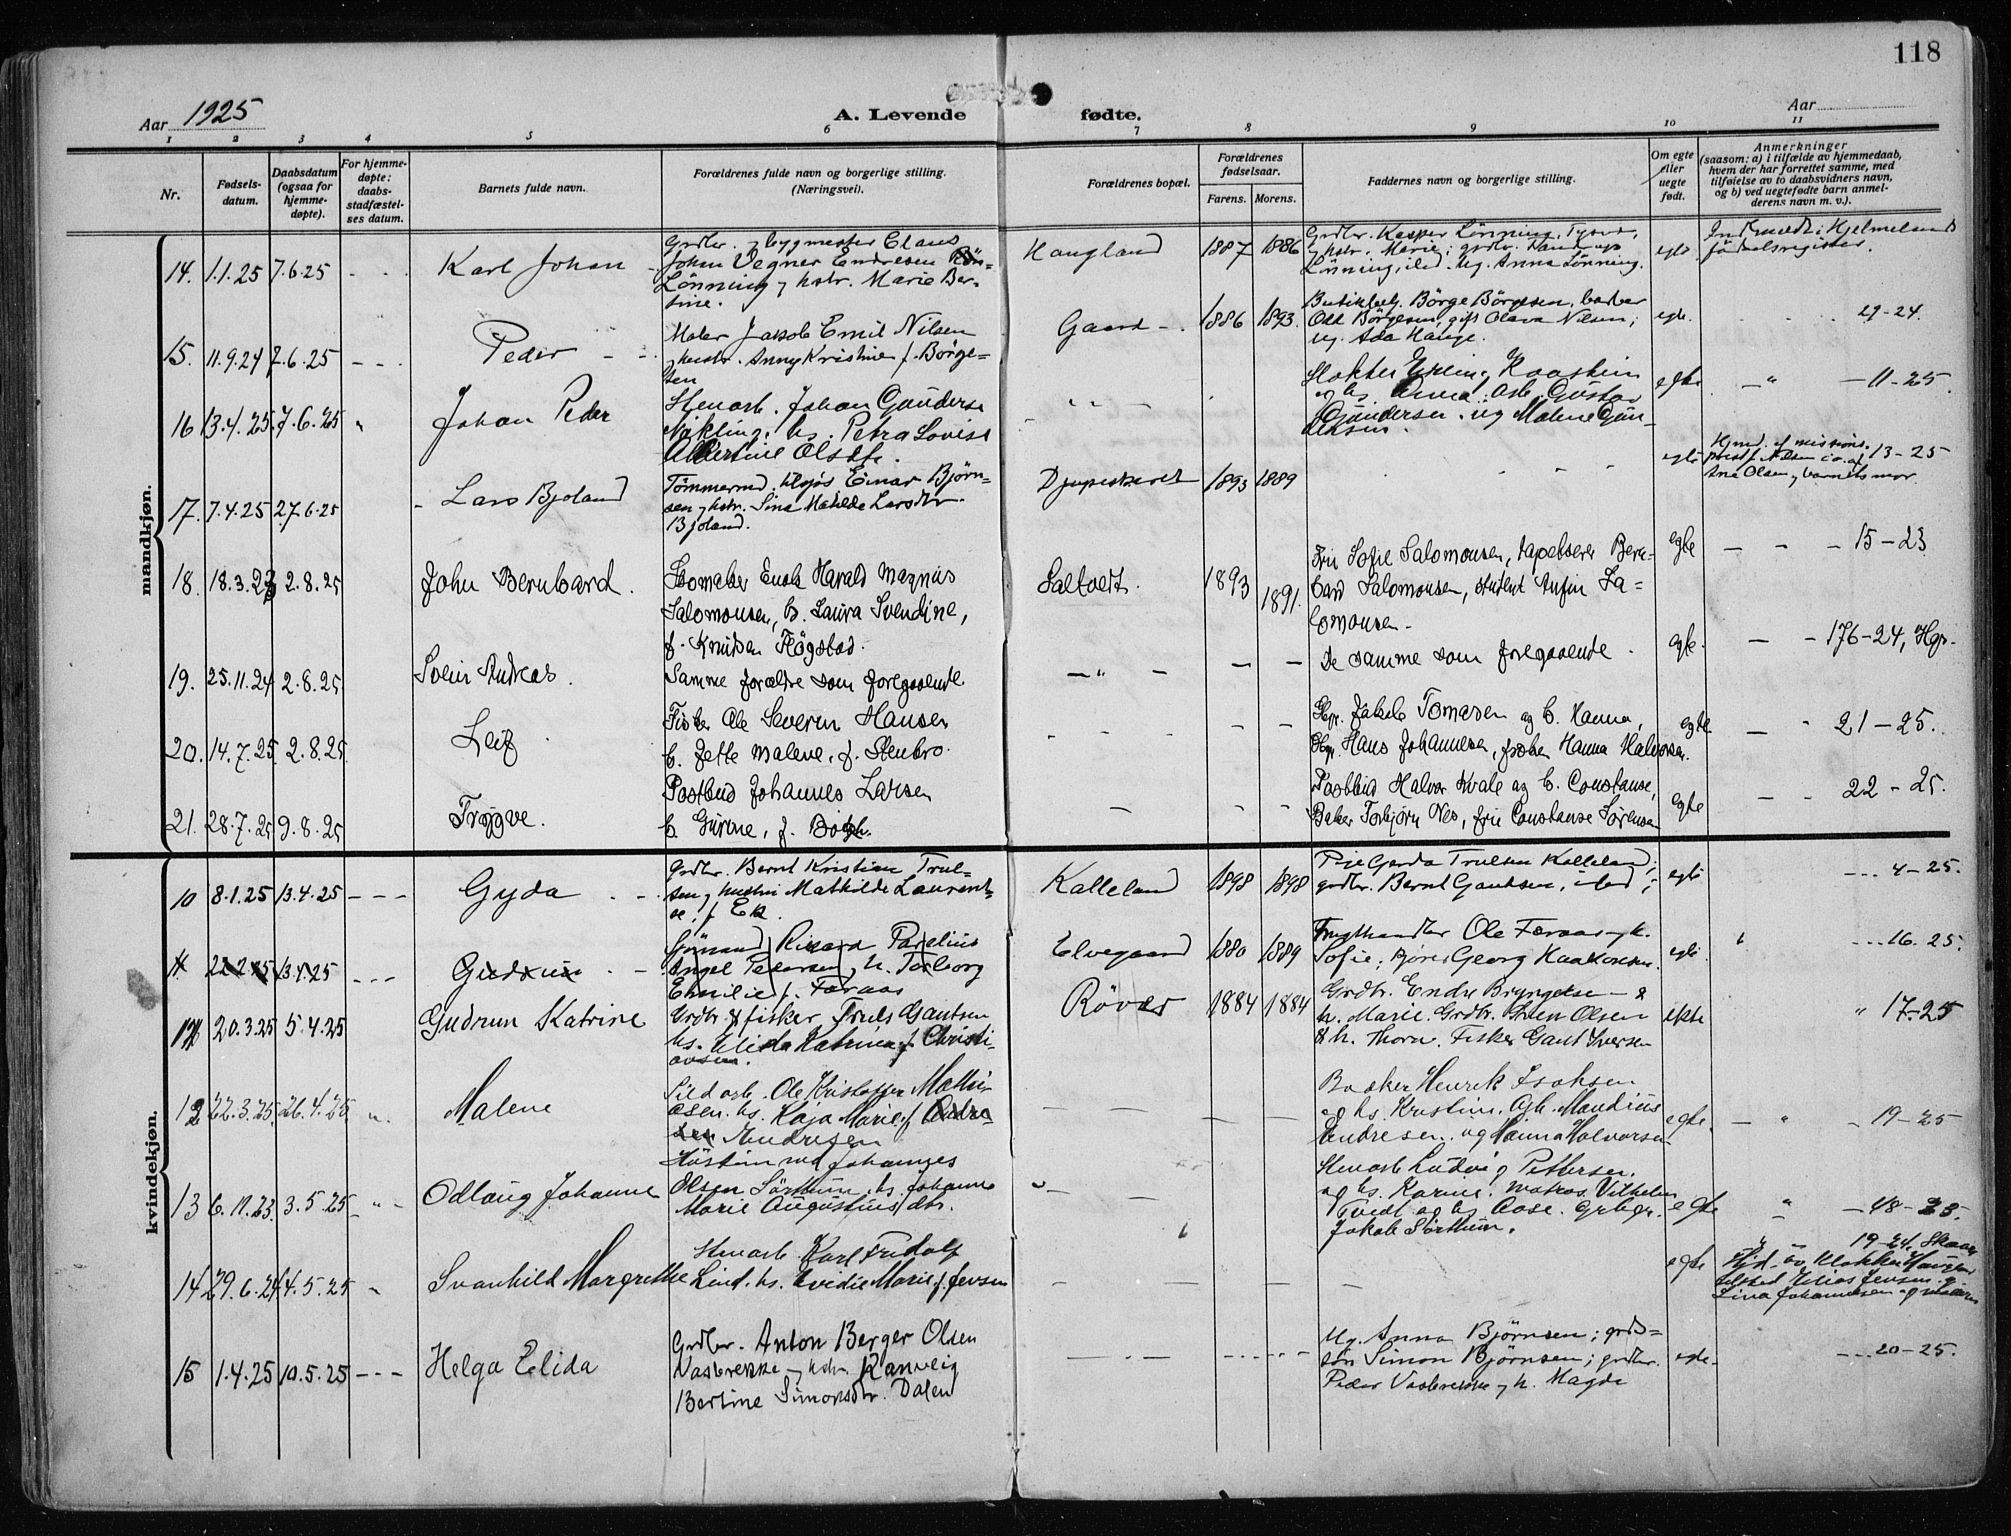 118
Aar 1925
A. Levende fødte.
Aar
1 2 3 4 5 6 7 8 9 10 11
Nr.
Fødsels-
datum.
Daabsdatum
(ogsaa for
hjemme-
døpte).
For hjemme-
døpte:
daabs-
stadfæstel-
ses datum.
Barnets fulde navn.
Forældrenes fulde navn og borgerlige stilling.
(Næringsvei).
Forældrenes bopæl.
Forældrenes
fødselsaar.
Farens. Morens.
Faddernes navn og borgerlige stilling.
Om egte
eller
uegte
født.
Anmerkninger
(saasom: a) i tilfælde av hjemmedaab,
hvem der har forrettet samme, med
tilføielse av to daabsvidners navn,
og b) ved uegtefødte barn anmel-
derens navn m. v.).
mandkjøn.
14. 1.1.25 7.6.25 - - - Karl Johan
Grdbr. y bygmester Claus
Johan Vegner Endresen
Lönning y hstr. Marie Ber-
tine.
Haugland 1887 1886
Grdbr. Kasper Lönning, Tysvær,
y hstr. Marie; grdbr.
Lönning, ibd. ug. Anna Lönning.
egte
Indmeldt i Hjelmelands
födselsregister.
15. 11.9.24 7.6.25 - - - Peder - -
Maler Jakob Emil Nilsen
y hustr. Anny Kristine f. Börge-
sen
Gaard - 1886 1893.
Butikbet. Börge Börgesen, barber
Odd Börgesen, gift Olava Nilsen;
ug. Ada Hauge.
egte. 29-24.
16 13.4.25 7.6.25 " Johan Peder
Stenarb. Johan Gunders
Nökling, hs. Petra Lovise
Albertine Olsdtr.
Slakter Elling Haastein
og hs. Anna. Arb. Gustav
Gundersen. ug Malene Gun-
dersen.
egte - " - 11-25.
17. 7.4.25 27.6.25 - Lars Bjoland
Tömmermd. Elojus Einar Bjørn-
sen y hstr. Sina Matilde Larsdtr
Bjoland.
Djupeskaret 1893 1889
egte
Hjmd. af missions-
prest f. Nilsen i o. af 13-25
Ane Olsen y barnets mor.
18. 18.3.23 2.8.25 John Bernhard.
Skomaker Enok Harald Magnus
Salomonsen, h. Laura Svendine,
f. Knutsen Flögstad.
Saltveit. 1893 1891.
Fru Sofie Salomonsen, tapetserer Bern-
hard Salomonsen, student Anfin Sa-
lomonsen.
egte - - - 15-23
19. 25.11.24 2.8.25 Svein Andreas.
Samme forældre som foregaaende.
- " - - -
De samme som foregaaende.
egte. - - 176-24, Hgs.
20. 14.7.25 2.8.25 Leif.
Fisker Ole Severin Hansen
h. Jette Malene, f. Stenbro.
- - - - -
Skpr. Jakob Tomasen og h. Hanna,
Skpr. Hans Johannesen, frøken Hanna Halvorsen.
egte - - 21-25.
21. 28.7.25 9.8.25 Trygve.
Postbud Johannes Larsen
h. Gurine, f.
- - -
Postbud Halvor Kvale og h. Constanse,
Baker Torbjørn Nes, fru Constanse Sørensen
egte - - 22-25.
kvindekjøn.
10 8.1.25 13.4.25 - - - Gyda - -
Grdbr. Bernt Kristian Trul-
sen y hustru Mathilde Laurent-
se, f. Ek.
Kalleland 1898 1898
Pige Gerda Trulsen Kalleland;
grdbr. Bernt Gautsen, ibd;
egte - - - 4-25.
11 22.2.25 13.4.25 - - - Gudrun - -
Sjömand Rikard Parelius
Angel Pedersen, h. Torborg
Emilie f. Foraas
Elvegaard 1880 1889
Frugthandler Ole Foraas y h.
Sofie; Georg Haakonsen.
egte - - - 16.25.
11 20.3.25 5.4.25 Gudrun Katrine
Grdbr & fisker Truls Gautsen
hs. Elida Katrine f. Christi-
ansen.
Rövær 1884 1884
Grdbr. Endre Bryngelsen &
h. Marie. Grdbr. Olsen
& h. Thora. Fisker Gaut Iversen
ekte " 17-25
12 22.3.25 26.4.25 " Malene
Sildarb. Ole Kristoffer Mathi-
asen. hs. Kaja Marie f. Andre-
sen Endresen
- - - -
Baaker Henrik Isaksen
og hs. Kristine. Arb. Maudius
Endresen. og Hanna Halvorsen
egte. - " - 19-25
13 6.11.23 3.5.25 - " - Odlaug Johanne
Johannes
Olsen Sörthun. hs. Johanne
Marie Augustinusdtr.
" - -
Stenarb Ludvig Pettersen.
og hs. Karine. Matros. Vilhelm
Tveidt og hs Aase. Grbgr.
Jakob Sörthun.
egte " - 48-23.
14 29.6.24 4.5.25 " Svanhild Margrethe
Stenarb. Karl Fridolf
Lind. hs. Evidie Marie f. Jensen
- - - - -
egte
" - 19-24. Skaare
Hjd. av Klokker Hauge
tilsted Elias Jensen. og
Lina Johannesen og moderen
15 1.4.25 10.5.25 - - - Helga Elida
Grdbr. Anton Berger Olsen
Vasbrekke y hstr. Ranveig
Bertine Simonsdtr. Dalen
- - - - - - - -
Ug. Anna Bjørnsen; grds-
søn Simon Bjørnsen; grdbr.
Peder Vasbrekke y h. Magda
egte. - - - 20-25.